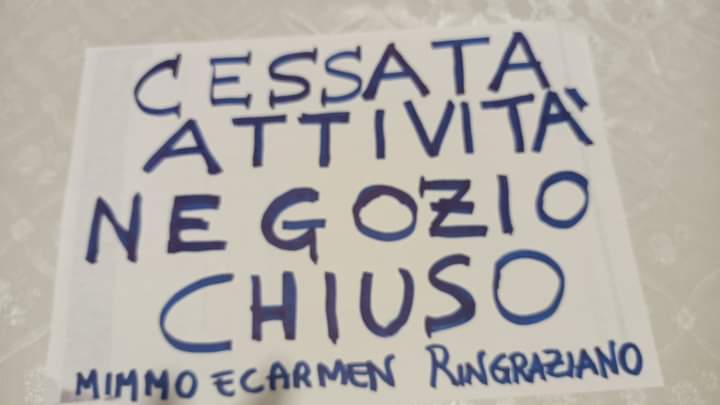 CESSATA
ATTIVITÀ
NEGOZIO
CHIUSO
MIMMO E CARMEN RINGRAZIANO